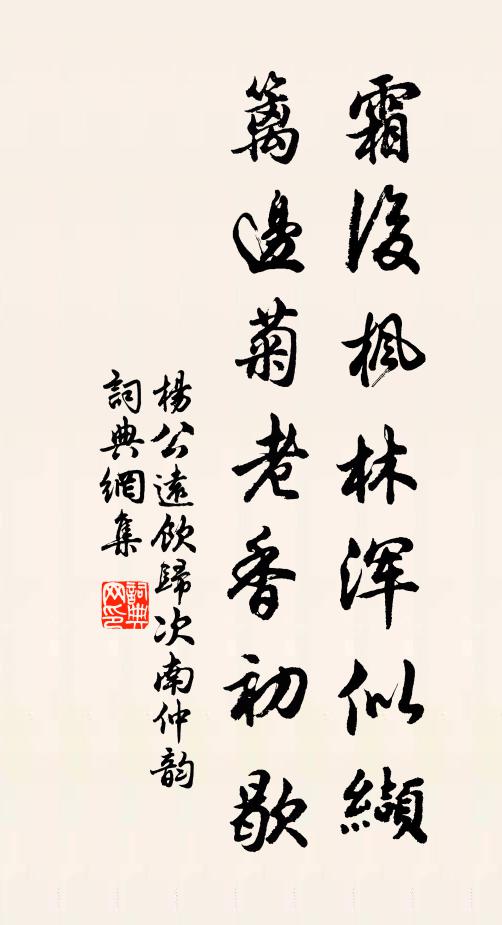 霜後楓林渾似纈
籬邊菊老香初歇
楊公遠飲歸次南仲韵
詞典網集
詞典
网印